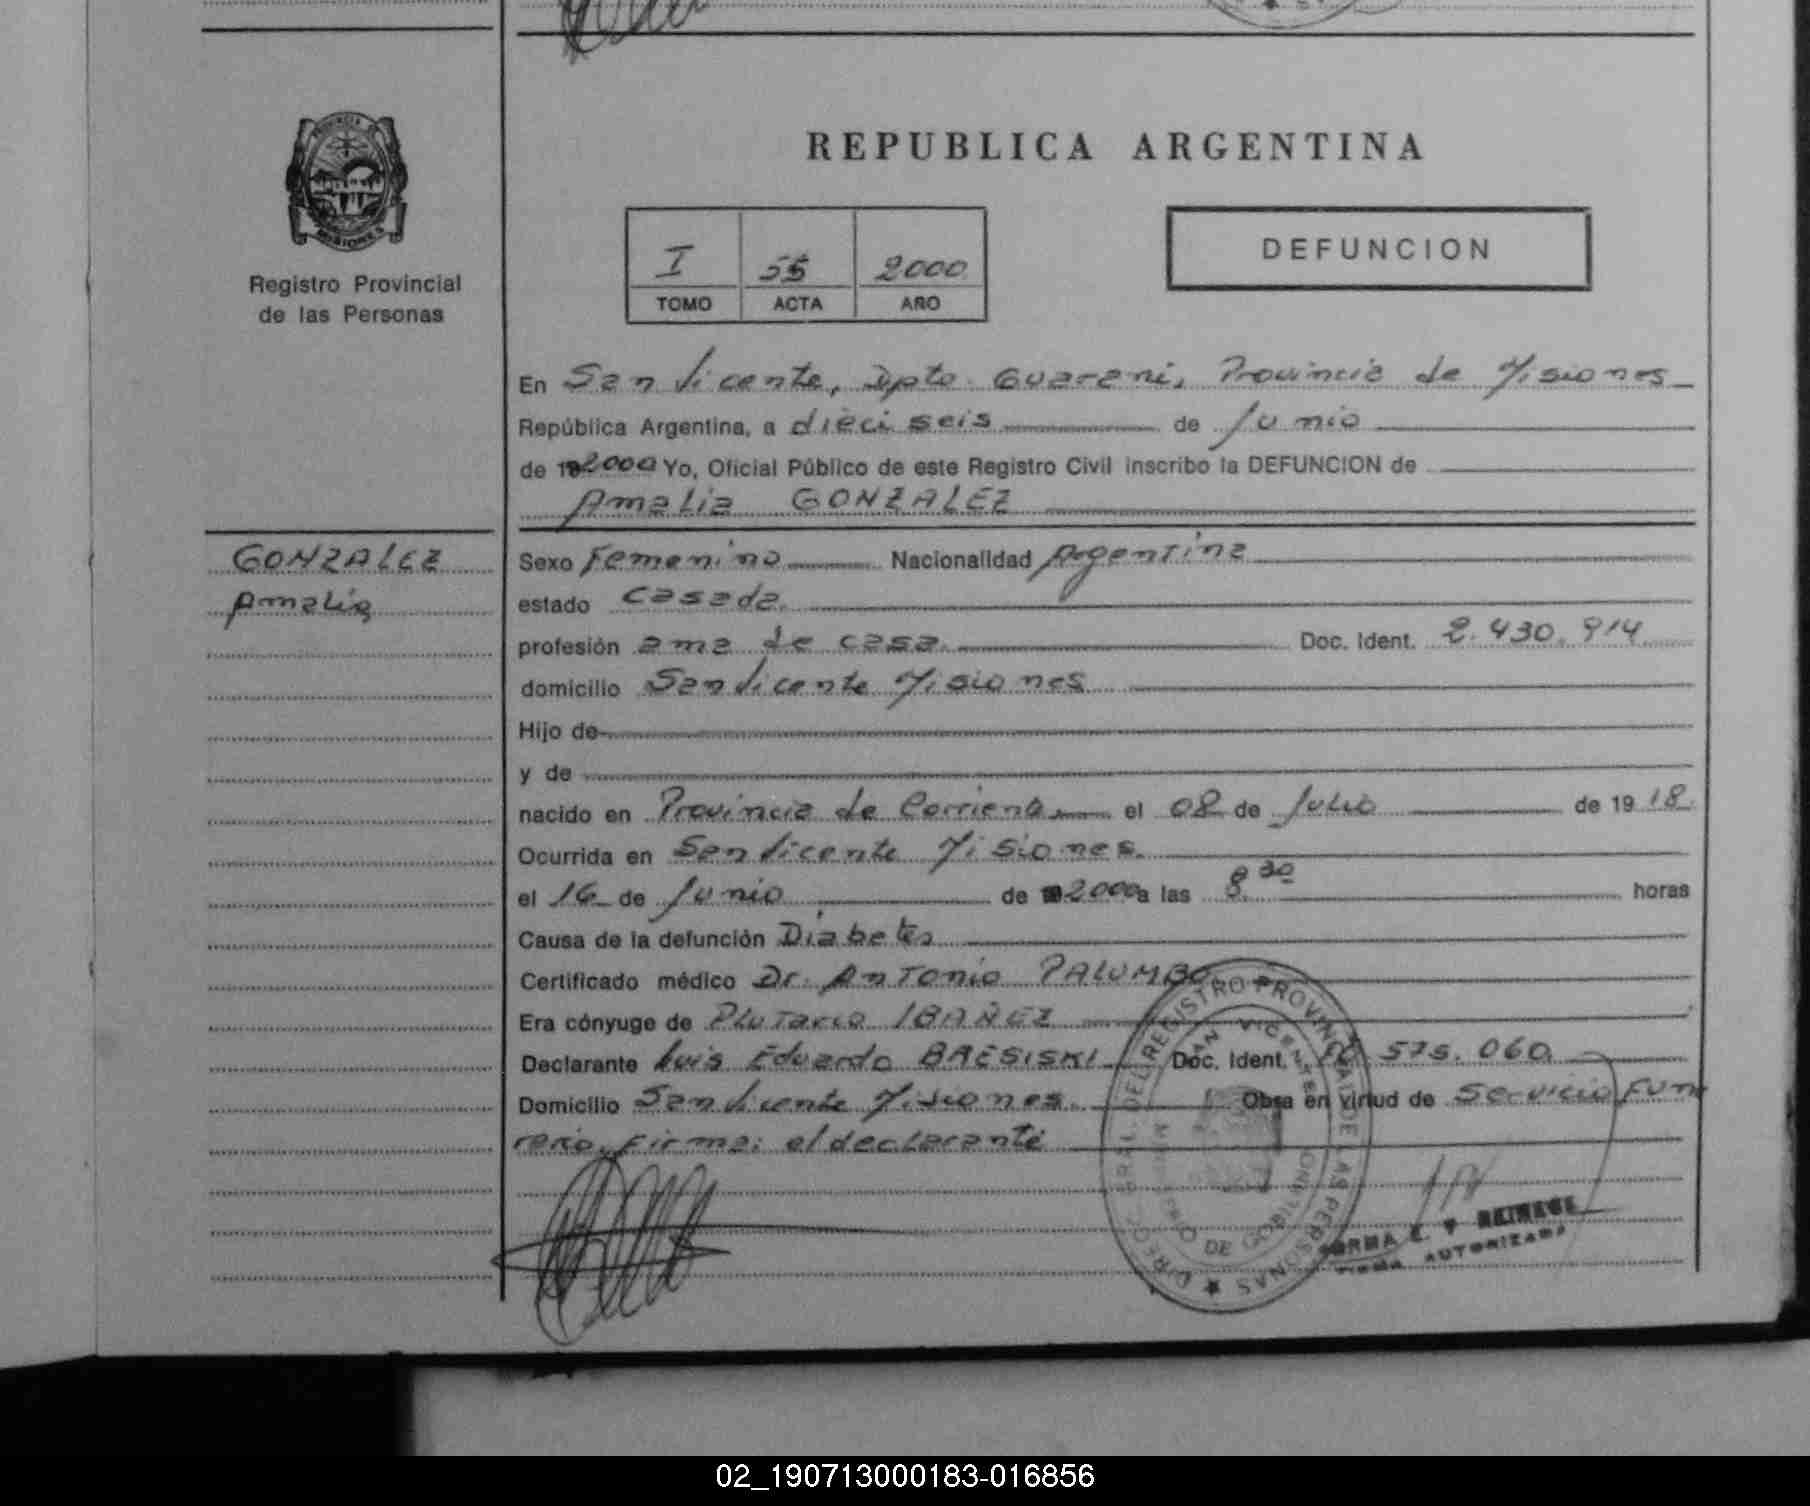 PROVINCIA DE
MISIONES
Registro Provincial
de las Personas
REPUBLICA ARGENTINA
I 55 2000
TOMO ACTA AÑO
DEFUNCION
En San Vicente, Dpto. Guarani, Provincia de Misiones
República Argentina, a dieciseis de Junio
de 19 2000 Yo, Oficial Público de este Registro Civil inscribo la DEFUNCION de
Amalia GONZALEZ
GONZALEZ
Amalia
Sexo Femenino Nacionalidad Argentina
estado Casada.
profesión ama de casa. Doc. Ident. 2.430.914
domicilio San Vicente Misiones
Hijo de
y de
nacido en Provincia de Corrientes el 08 de Julio de 19 18.
Ocurrida en San Vicente Misiones.
el 16 de Junio de 2000 a las 8.30 horas
Causa de la defunción Diabetes
Certificado médico Dr. Antonio PALUMBO
Era cónyuge de Plutarco IBAÑEZ
Declarante Luis Eduardo BAESISKI Doc. Ident. 575.060.
Domicilio San Vicente Misiones. Obra en virtud de Servicio Fune
rario. Firma: el declarante
DIREC. GRAL. DEL REGISTRO PROVINCIAL DE LAS PERSONAS
SAN VICENTE
DE GOBIERNO
NORMA
FIRMA AUTORIZADA
02_190713000183-016856